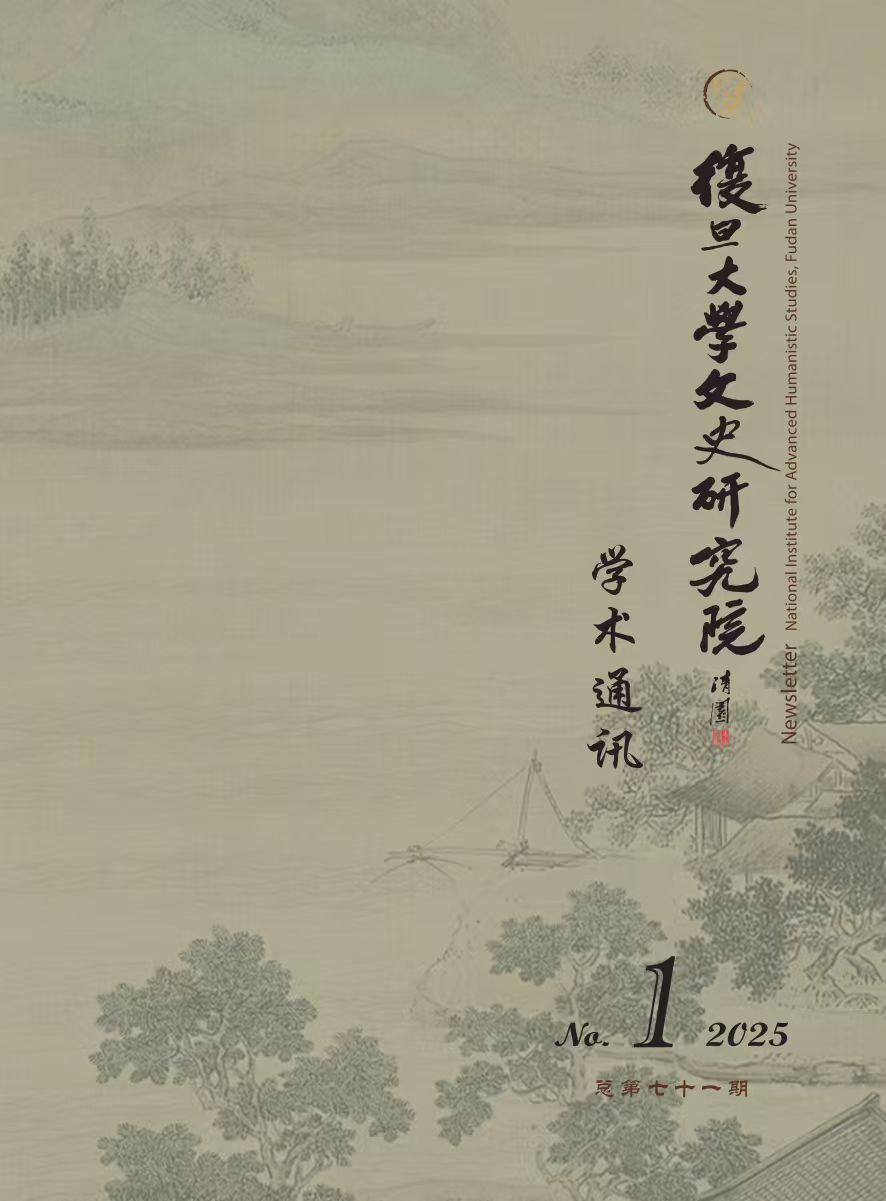 復旦大學文史研究院
清園
Newsletter National Institute for Advanced Humanistic Studies, Fudan University
学术通讯
No. 1 2025
总第七十一期